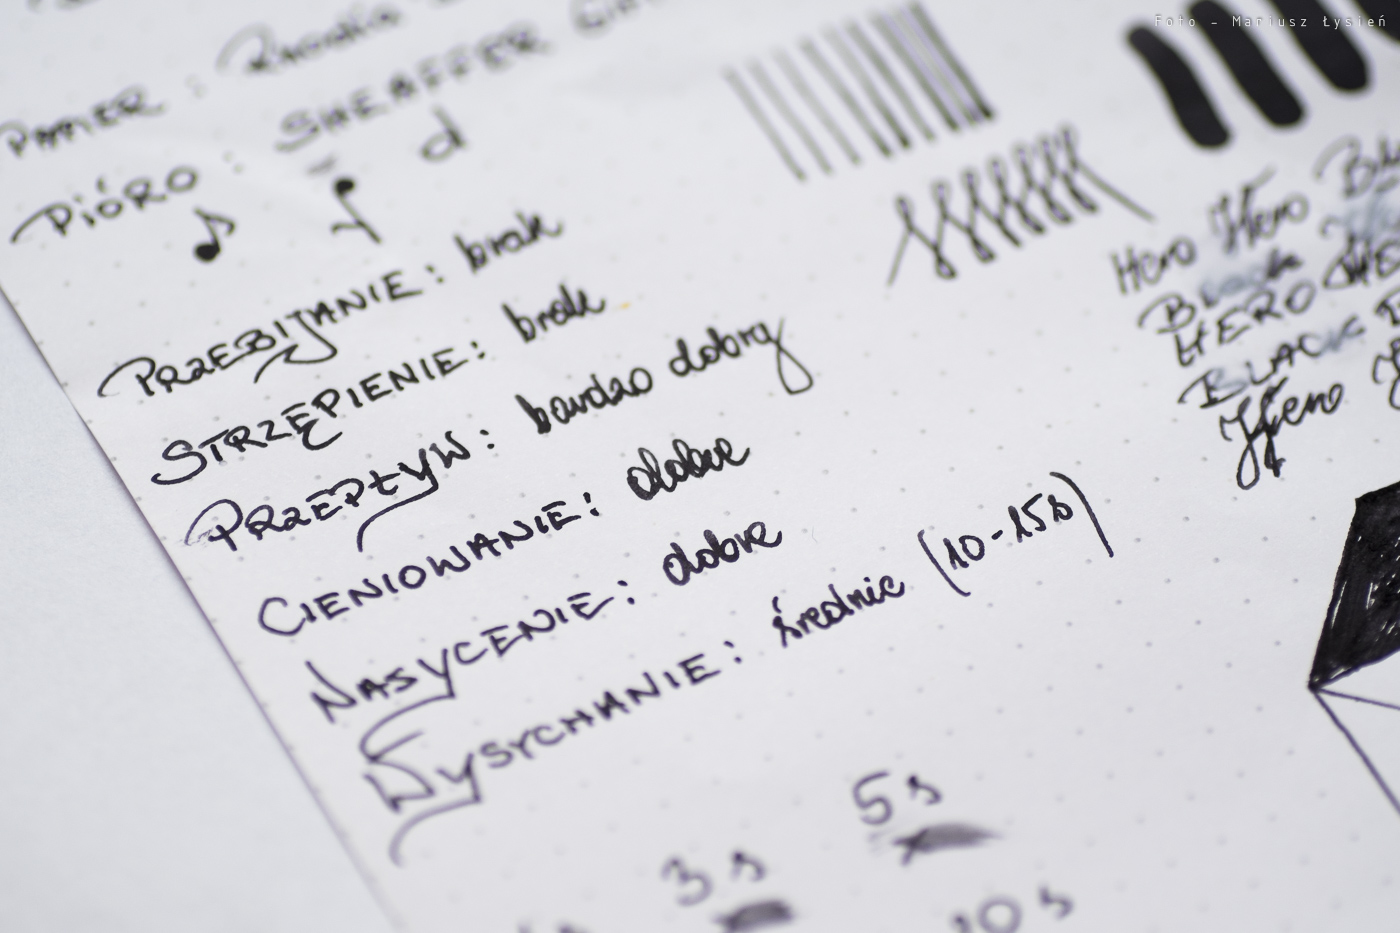 Foto - Mariusz Łysień
PAPIER : Rhodia
PIÓRO : SHEAFFER
PRZEBIJANIE : brak
STRZĘPIENIE : brak
PRZEPŁYW : bardzo dobry
CIENIOWANIE : dobre
NASYCENIE : dobre
WYSYCHANIE : średnie (10-15s)
5s
3s
10s
Hero Hero
Black
HERO
BLACK
Hero